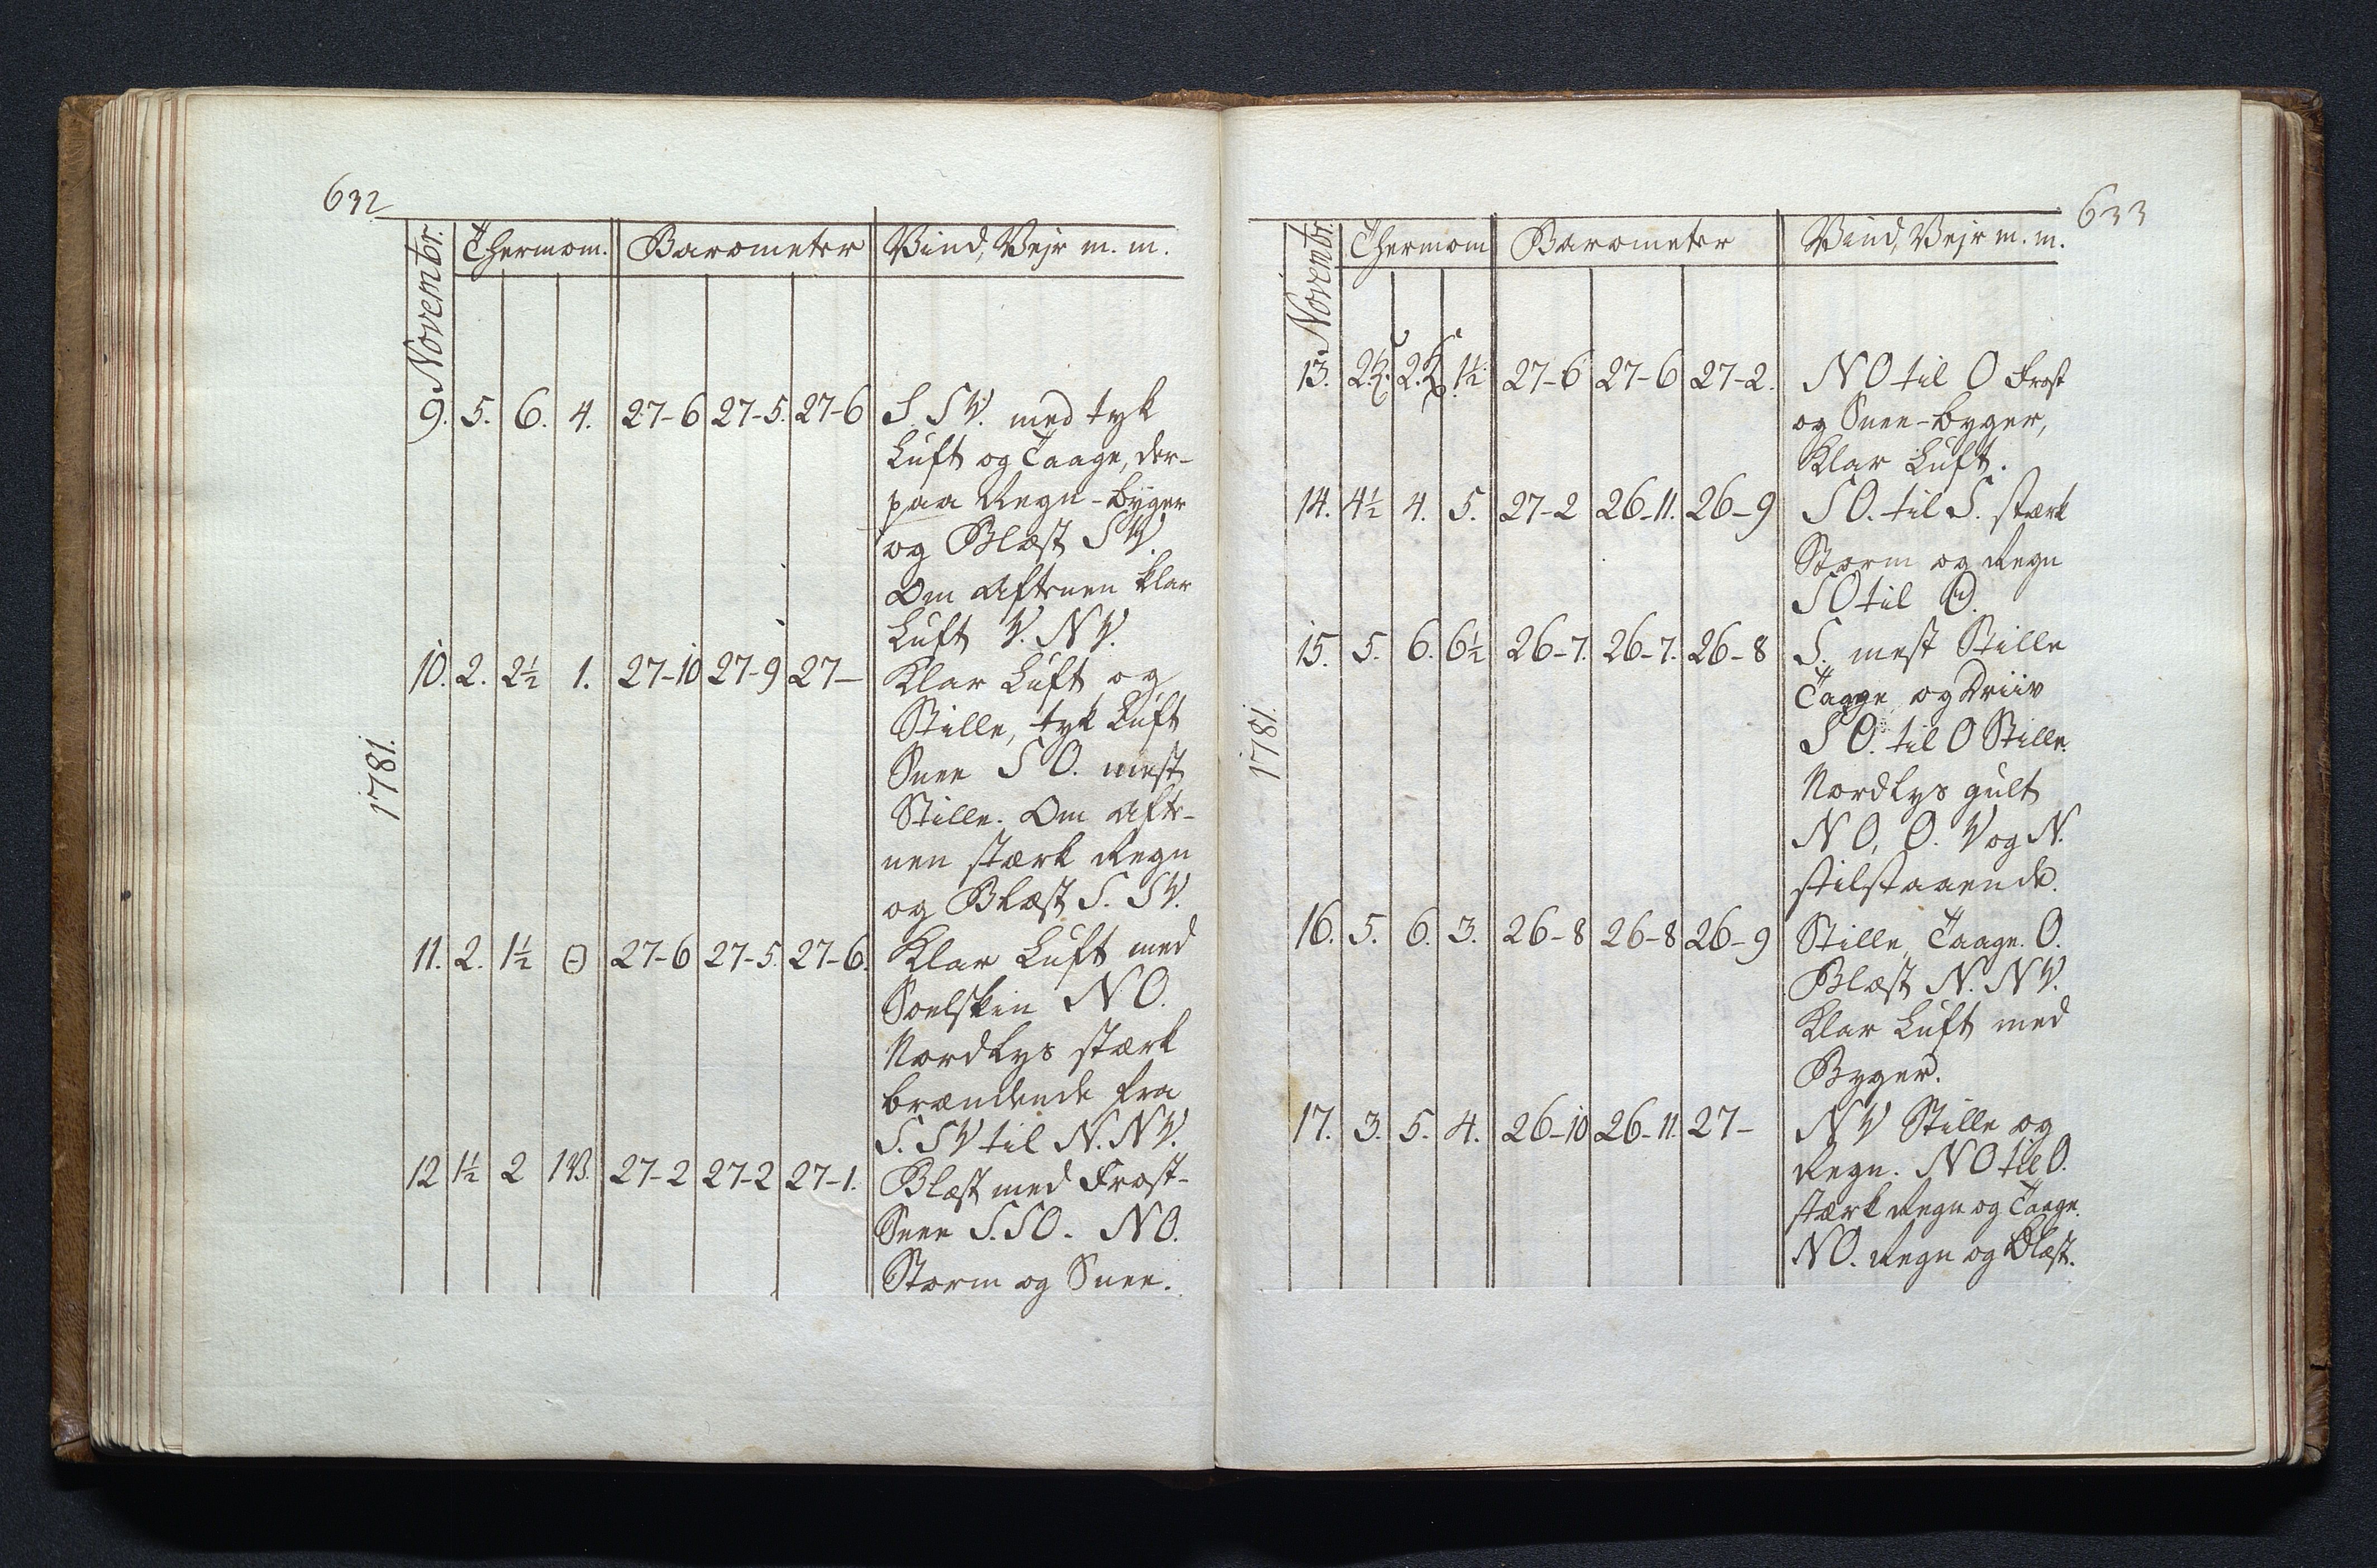 632
Novembr. Thermom. Barometer Vind, Vejr m. m.
9. 5. 6. 4. 27-6 27-5. 27-6 S. SV. med tyk
Luft og Taage, der-
paa Regn-byger
og Blæst SV.
Om Aftenen klar
Luft V. NV.
10. 2. 2½ 1. 27-10 27-9 27- Klar Luft og
Stille, tyk Luft
Snee SO. mest
Stille. Om Afte-
nen stærk Regn
og Blæst S. SV.
1781.
11. 2. 1½ 27-6 27-5. 27-6. Klar Luft med
Soelskin NO.
Nordlys stærk
brændende fra
S. SV til N. NV.
12 1½ 2 1 27-2 27-2 27-1. Blæst med Frost-
Snee S. SO. NO.
Storm og Snee.
633
Novembr. Thermom Barometer Vind, Vejr m. m.
13. 1½ 27-6 27-6 27-2. NO til O Frost
og Snee-byger,
Klar Luft.
14. 4½ 4. 5. 27-2 26-11. 26-9 SO. til S. stærk
Storm og Regn
SO til O.
15. 5. 6. 6½ 26-7. 26-7. 26-8 S. mest Stille
Taage og Driiv
SO. til O Stille.
Nordlys gult
NO, O. V og N.
stilstaaende.
1781.
16. 5. 6. 3. 26-8 26-8 26-9 Stille, Taage. O.
Blæst N. NV.
Klar Luft med
Byger.
17. 3. 5. 4. 26-10 26-11. 27- NV Stille og
Regn. NO til O.
stærk Regn og Taage.
NO. Regn og Blæst.